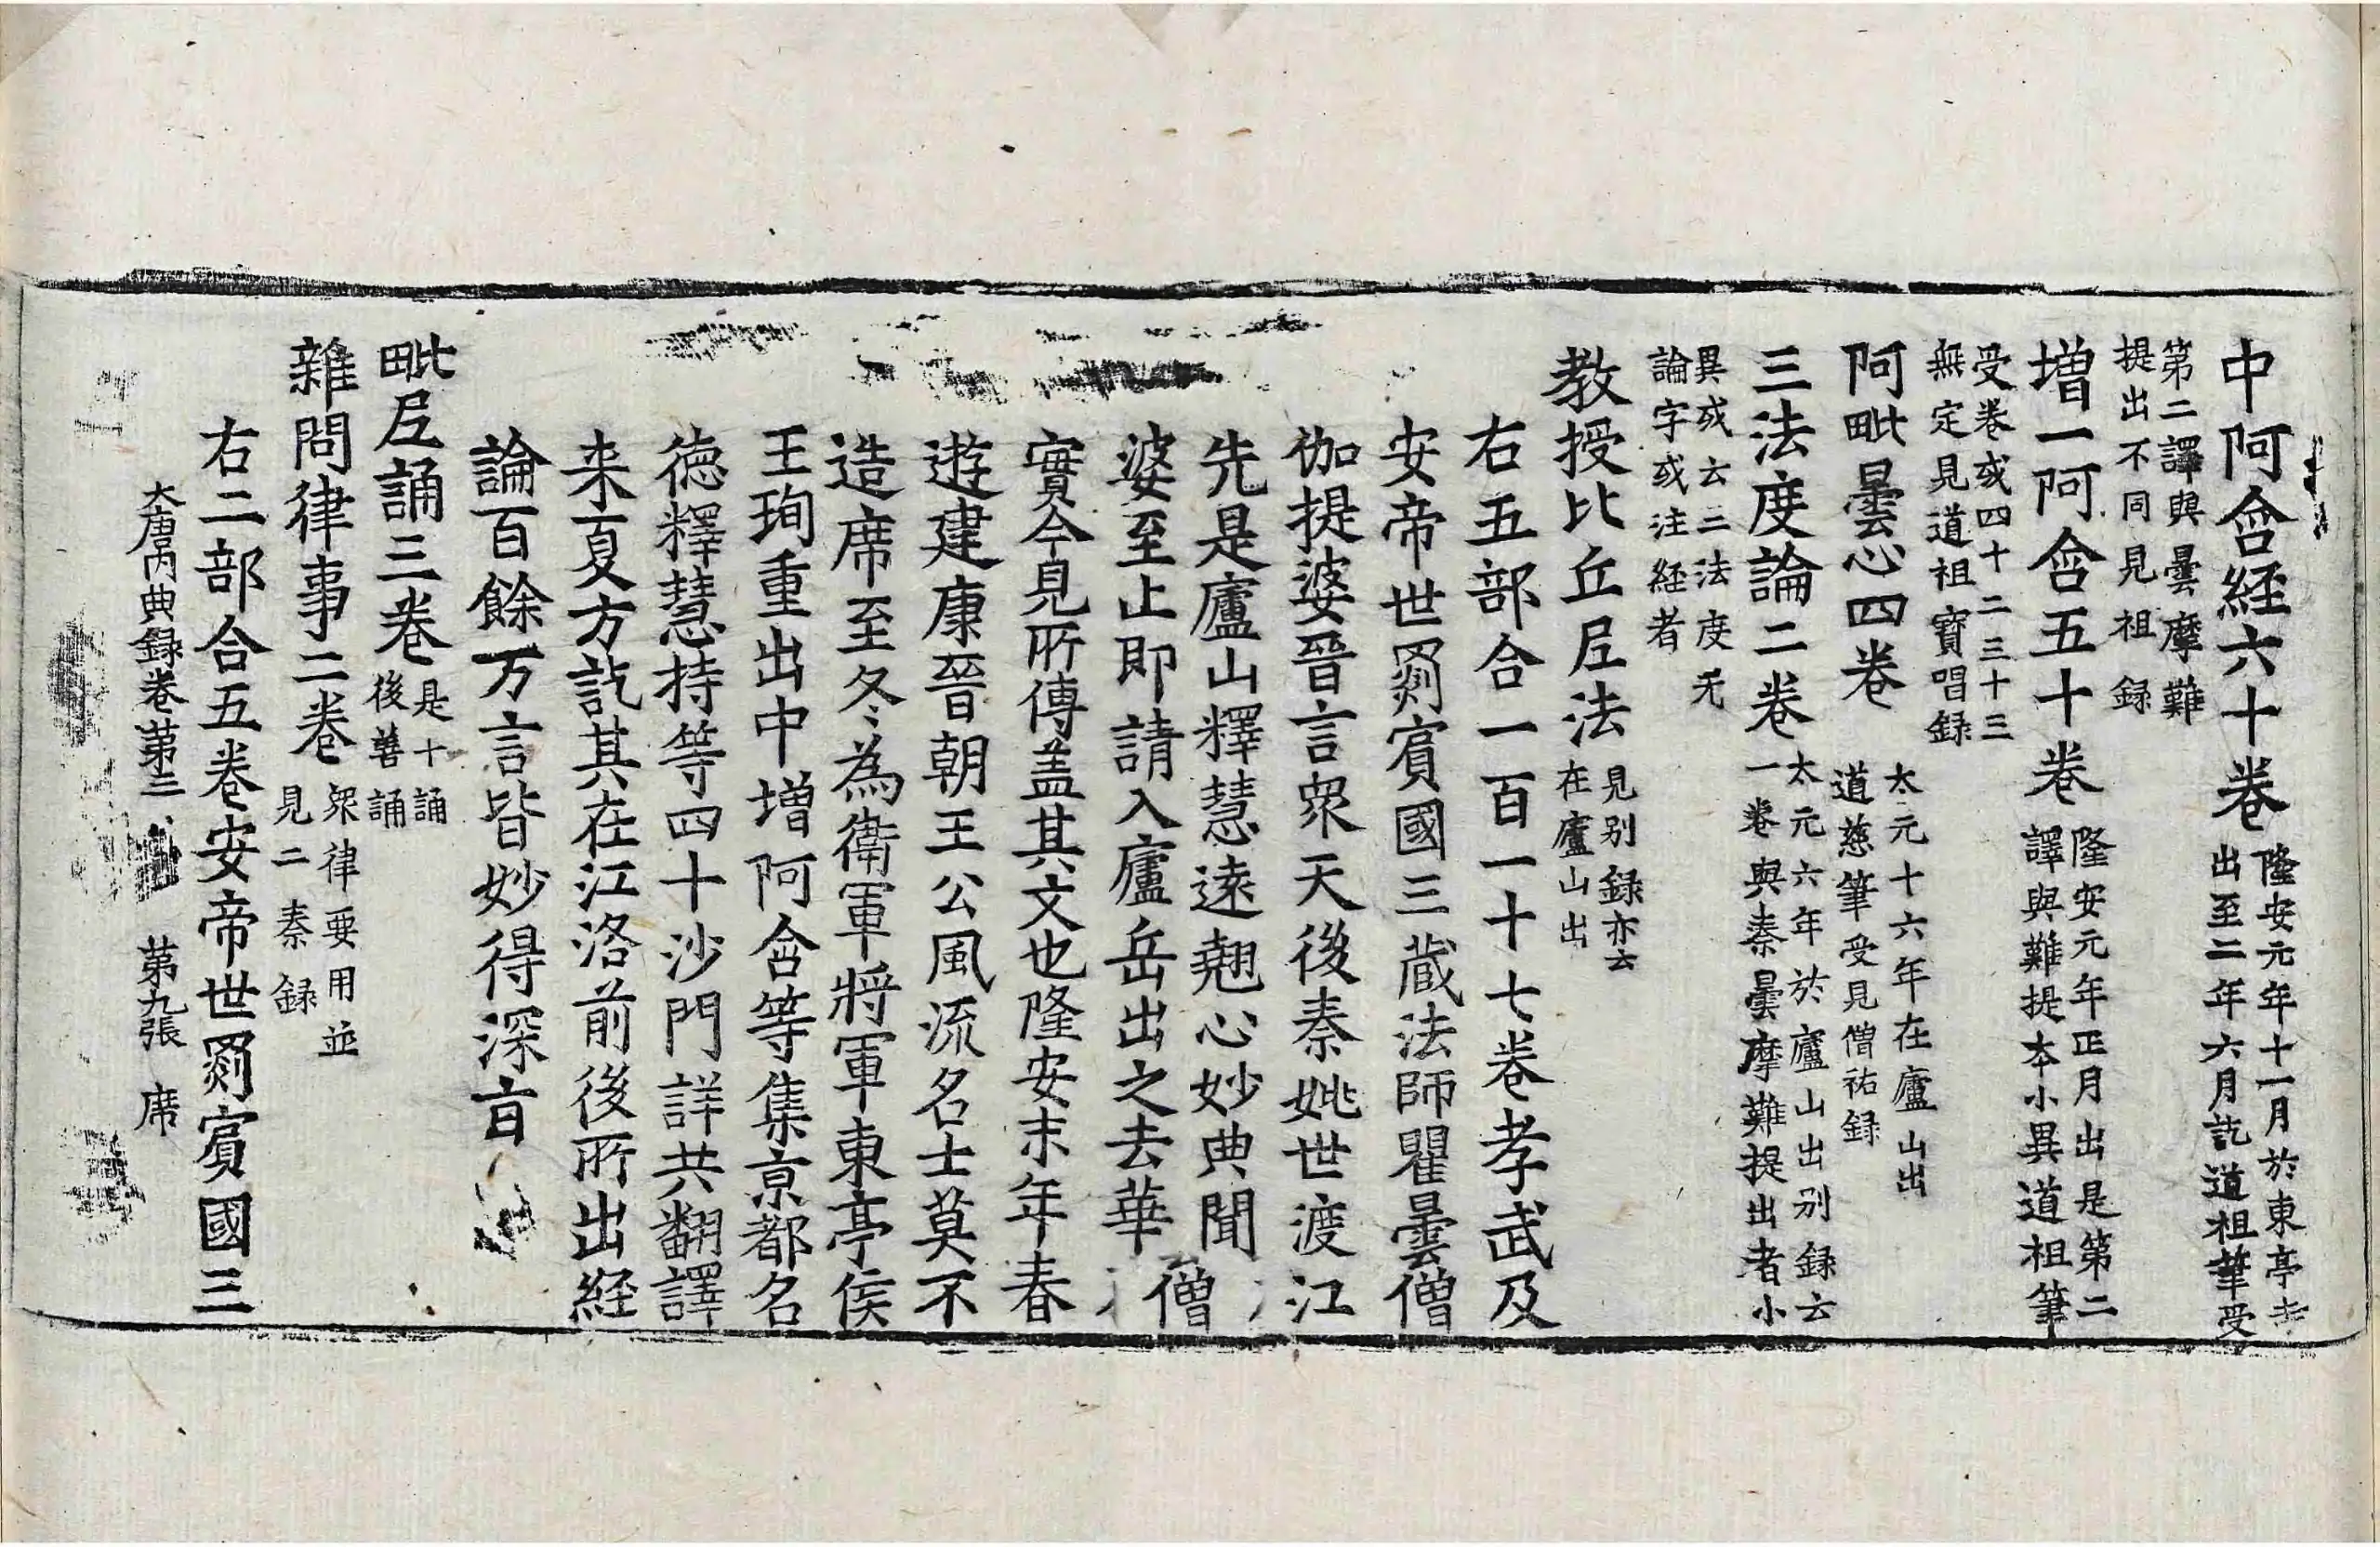 中阿含経六十卷隆安元年十一月於東亭寺出至二年六月訖道祖筆受
第二譯與曇摩難提出不同見祖録
增一阿含五十卷隆安元年正月出是第二譯與難提本小異道祖筆
受卷或四十二三十三無定見道祖寶唱録
阿毗曇心四卷太元十六年在廬山出道慈筆受見僧祐録
三法度論二卷太元六年於廬山出别録云一卷與秦曇摩難提出者小
異或云二法度无論字或注経者
教授比丘尼法見别録亦云在廬山出
右五部合一百一十七卷孝武及
安帝世罽賓國三蔵法師瞿曇僧
伽提婆晉言衆天後秦姚世渡江
先是廬山釋慧遠翹心妙典聞僧
婆至止即請入廬岳出之去華
實今見所傳盖其文也隆安末年春
遊建康晉朝王公風流名士莫不
造席至冬為衛軍將軍東亭侯
王珣重出中增阿含等集京都名
徳釋慧持等四十沙門詳共翻譯
来夏方訖其在江洛前後所出経
論百餘万言皆妙得深㫖
毗尼誦三卷是十誦後善誦
雜問律事二卷衆律要用並見二秦録
右二部合五卷安帝世罽賓國三
大唐内典録卷第三 第九張 席